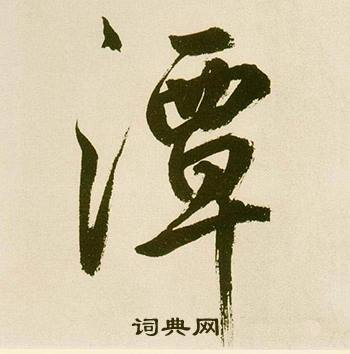 潭
词典网